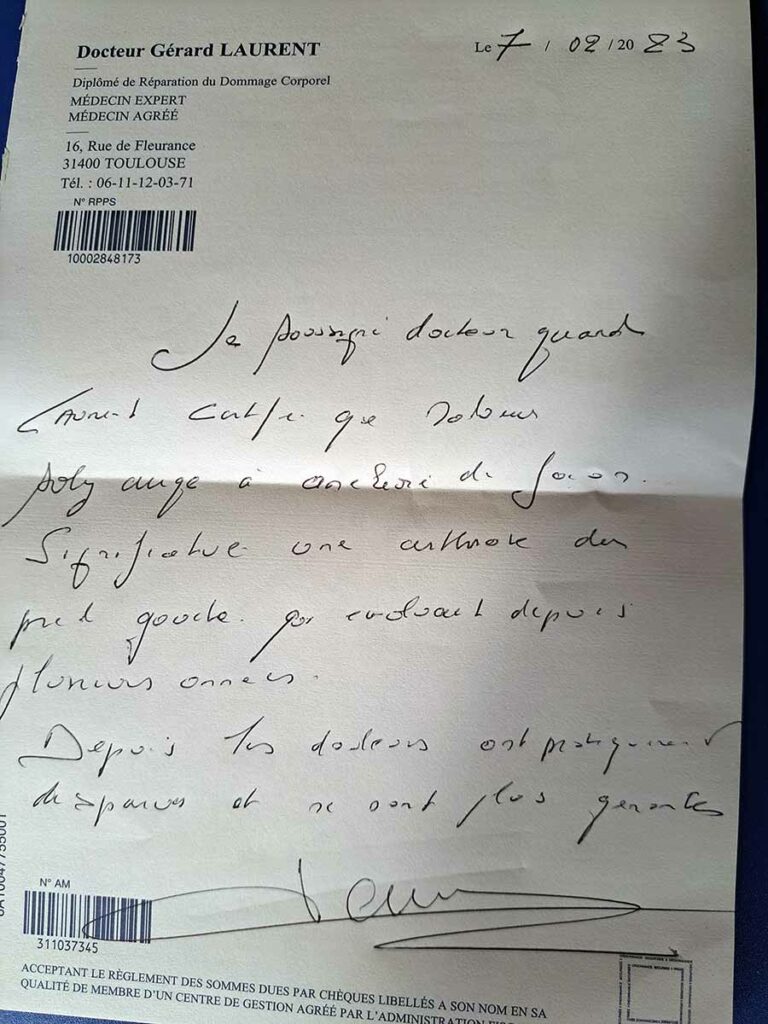 Docteur Gérard LAURENT
Le 7 / 02 / 20 23
Diplômé de Réparation du Dommage Corporel
MÉDECIN EXPERT
MÉDECIN AGRÉÉ
16, Rue de Fleurance
31400 TOULOUSE
Tél. : 06-11-12-03-71
N° RPPS
10002848173
Je soussigné docteur
Laurent certifie que
poly à amélioré de façon
significative une arthrose du
pied gauche qui evoluait depuis
plusieurs années.
Depuis les douleurs ont pratiquement
disparues et ne sont plus genantes
N° AM
311037345
ACCEPTANT LE RÈGLEMENT DES SOMMES DUES PAR CHÈQUES LIBELLÉS A SON NOM EN SA
QUALITÉ DE MEMBRE D'UN CENTRE DE GESTION AGRÉÉ PAR L'ADMINISTRATION